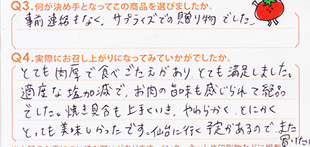 Q3.何が決め手となってこの商品を選びましたか。
事前連絡もなく、サプライズでの贈り物でした。
Q4.実際にお召し上がりになってみていかがでしたか。
とても肉厚で食べごたえがあり、とても満足しました。
適度な塩加減で、お肉の旨味も感じられて絶品
でした。焼き具合も上手くいき、やわらかく とにかく
とっても美味しかったです。仙台に行く予定があるので また
買いたい